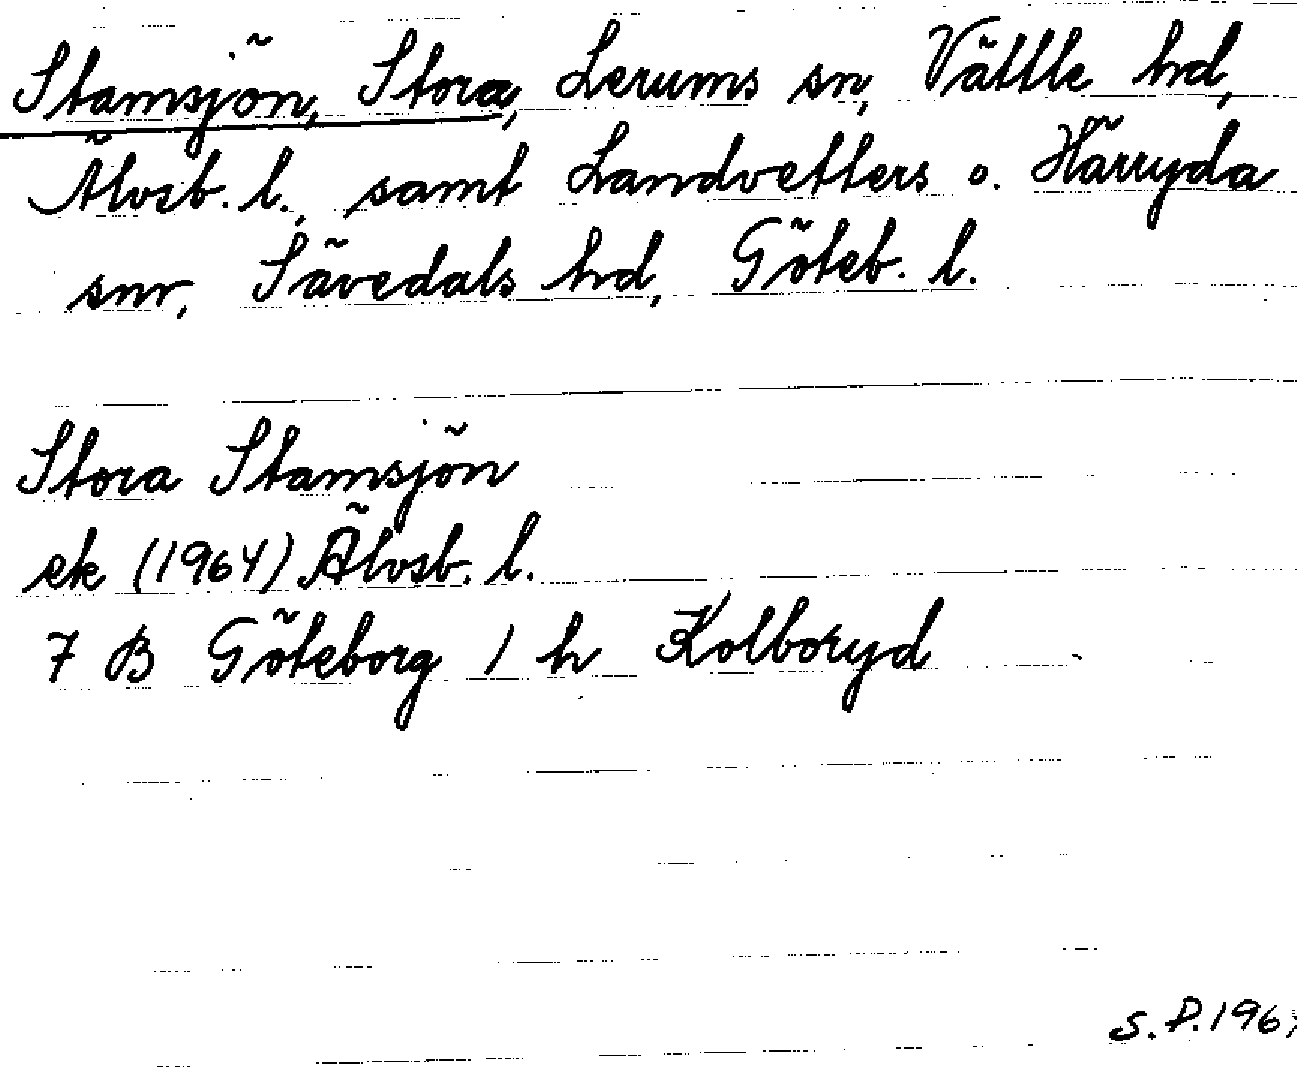 Stamsjön, Stora, Lerums sn, Vättle hd,
Älvsb. l., samt Landvetters o. Härryda
snr, Sävedals hd, Göteb. l.
Stora Stamsjön
ek (1964) Älvsb. l.
7 B Göteborg 1 h Kolboryd
S. P.